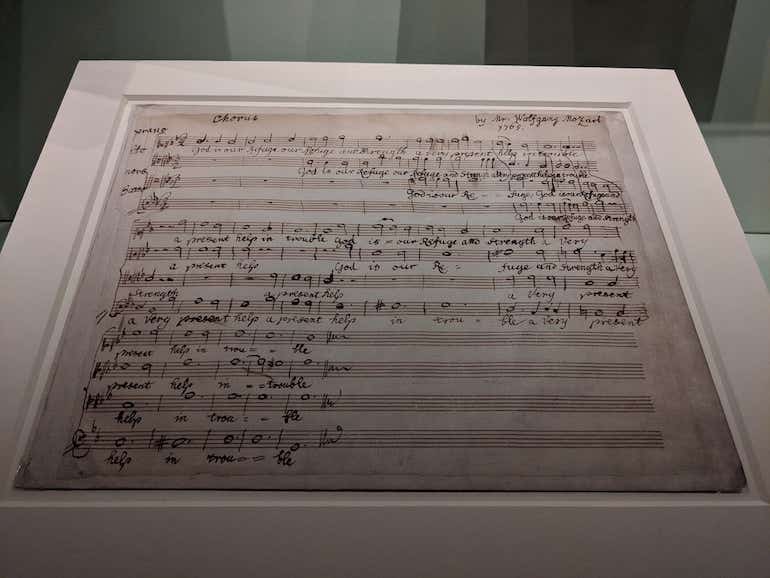 Chorus by Mr. Wolfgang Mozart
1765.
prano
lto God is our Refuge our Refuge and Strength a very present help in trouble
nore God is our Refuge our Refuge and Strength a Very present help in trouble
Basso God is our Re - - fuge, God is our Refuge and
God is our Refuge and Strength
a present help in trouble God is = our Refuge and Strength a Very
a present help God is our Re = - fuge and Strength a very
Strength a present help a Very present
a Very present help a present help in trou - ble a Very present
present help in trou = = ble
present help in = = trouble
help in trou = - ble
help in trou = = ble